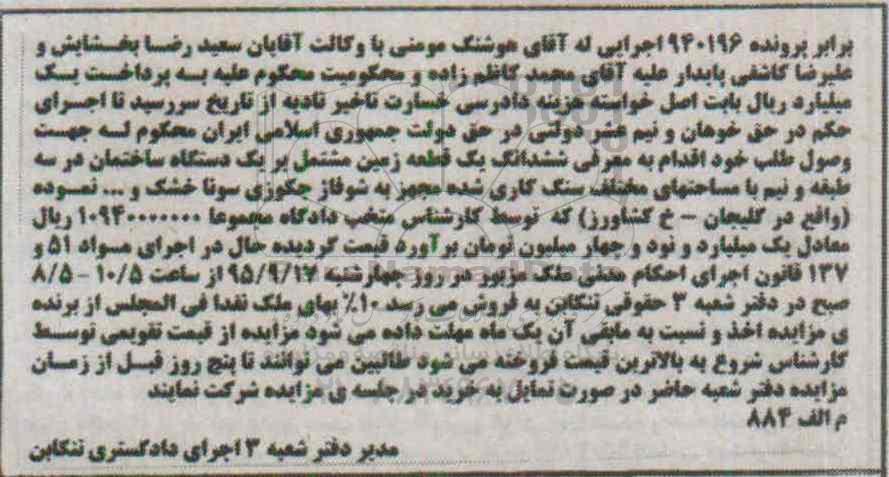 برابر پرونده ۹۴۰۱۹۶ اجرایی له آقای هوشنگ مومنی با وکالت آقایان سعید رضا بخشایش و
علیرضا کاشفی پایدار علیه آقای محمد کاظم زاده و محکومیت محکوم علیه به پرداخت یک
میلیارد ریال بابت اصل خواسته هزینه دادرسی خسارت تاخیر تادیه از تاریخ سررسید تا اجرای
حکم در حق خوهان و نیم عشر دولتی در حق دولت جمهوری اسلامی ایران محکوم له جهت
وصول طلب خود اقدام به معرفی ششدانگ یک قطعه زمین مشتمل بر یک دستگاه ساختمان در سه
طبقه و نیم با مساحتهای مختلف سنگ کاری شده مجهز به شوفاژ جکوزی سونا خشک و ... نموده
(واقع در گلیجان - خ کشاورز) که توسط کارشناس منتخب دادگاه مجموعا ۱۰۹۴۰۰۰۰۰۰۰ ریال
معادل یک میلیارد و نود و چهار میلیون تومان برآورد قیمت گردیده حال در اجرای مواد ۵۱ و
۱۳۷ قانون اجرای احکام مدنی ملک مزبور در روز چهارشنبه ۹۵/۹/۱۷ از ساعت ۱۰/۵ - ۸/۵
صبح در دفتر شعبه ۳ حقوقی تنکابن به فروش می رسد ۱۰٪ بهای ملک نقدا فی المجلس از برنده
ی مزایده اخذ و نسبت به مابقی آن یک ماه مهلت داده می شود مزایده از قیمت تقویمی توسط
کارشناس شروع به بالاترین قیمت فروخته می شود طالبین می توانند تا پنج روز قبل از زمان
مزایده دفتر شعبه حاضر در صورت تمایل به خرید در جلسه ی مزایده شرکت نمایند
م الف ۸۸۴
مدیر دفتر شعبه ۳ اجرای دادگستری تنکابن